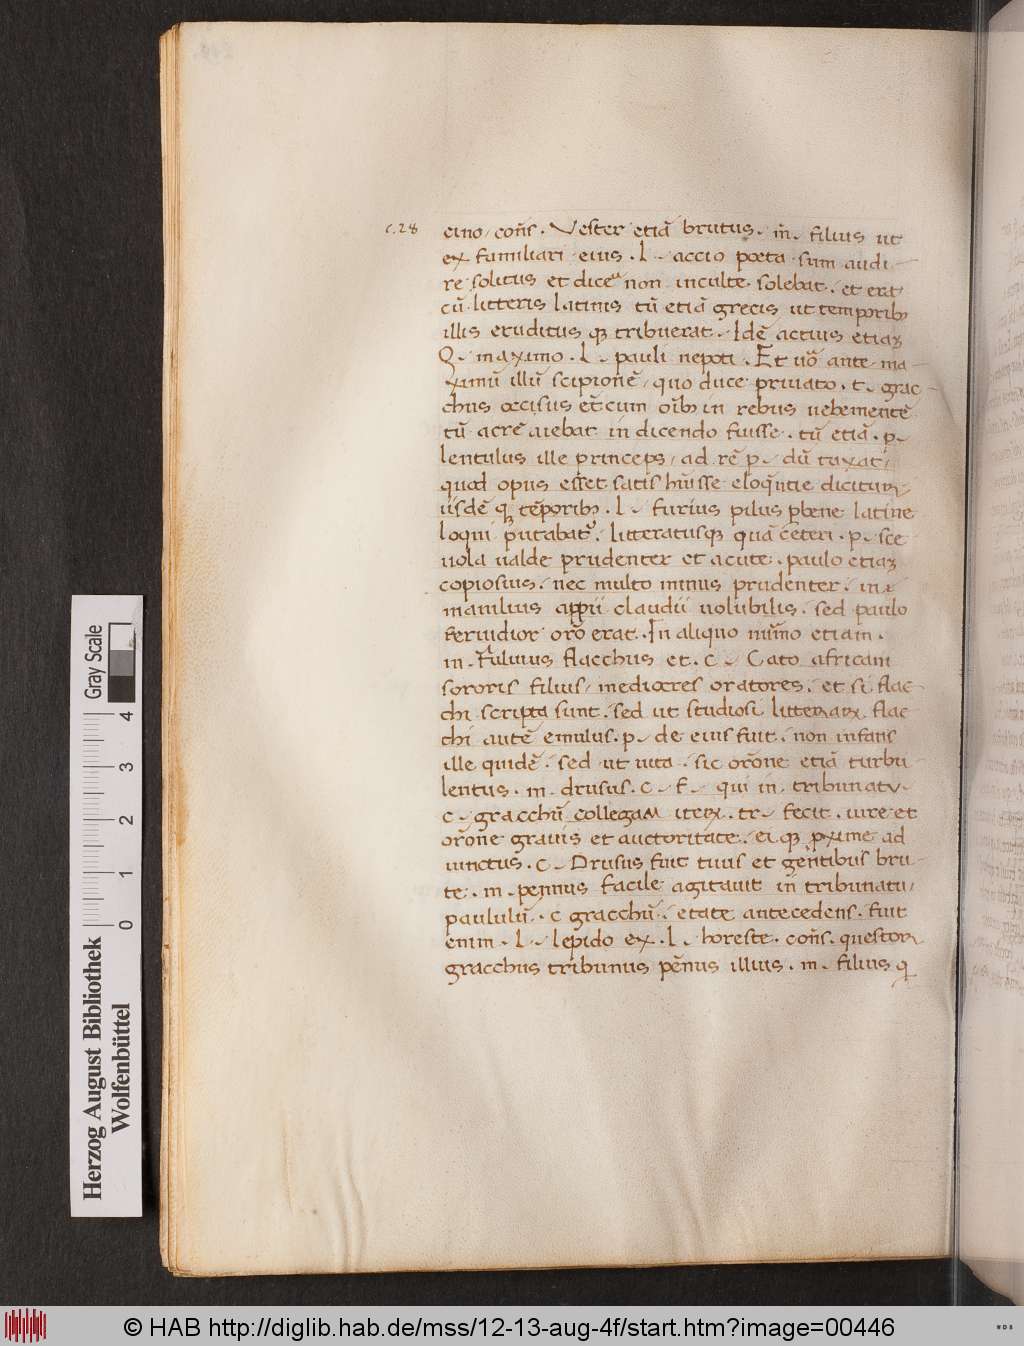 c. 28
cino / coñs . Vester etiã brutus . m̃ . filius ut
ex familiari eius . L . accio poeta sum audi
re solitus et dicere non inculte solebat . et erat
cũ litteris latinis tũ etiã grecis ut temporibꝫ
illis eruditus qꝫ tribuerat . Idẽ actius etiaꝫ
Q . maximo . L . pauli nepoti . Et uõ ante ma
ximũ illũ scipionẽ / quo duce priuato . t . grac
chus occisus et̃ cum oĩbꝫ in rebus uehementẽ
tũ acrẽ aiebat in dicendo fuisse . tũ etiã . p .
lentulus ille princeps / ad rẽ p . dũ taxat /
quod opus esset satis hũisse eloq̃ntie dicitur /
iisdẽ qꝫ tẽporibꝫ . L . furius pilus ꝑbene latine
loqui putabat᷑ . litteratusqꝫ quã ceteri . p . sce
uola ualde prudenter et acute . paulo etiaꝫ
copiosius . nec multo minus prudenter . m
manilius appii claudii uolubilis . sed paulo
feruidior orõ erat . In aliquo nũmo etiam .
m . Fuluius flacchus et . C . Cato africani
sororis filius / mediocres oratores . et si flac
chi scripta sunt . sed ut studiosi litterarꝝ flac
chi autẽ emulus . p . de eius fuit . non infans
ille quidẽ . sed ut uita . sic orõne etiã turbu
lentus . m . drusus . C . F . qui in tribunatu
C . gracchũ collegam iterꝝ . tr . fecit . uir et
orõne grauis et auctoritate . ei qꝫ ꝓxime ad
iunctus . C . Drusus fuit tuus et gentibus bru
te . m . pennus facile agitauit in tribunatu /
paululũ . C gracchũ . etate antecedens . fuit
enim . L . lepido ex . L . horeste . coñs . questor
gracchus tribunus pẽnus illius . m . filius q
Herzog August Bibliothek
Wolfenbüttel
Gray Scale
0 1 2 3 4
© HAB http://diglib.hab.de/mss/12-13-aug-4f/start.htm?image=00446